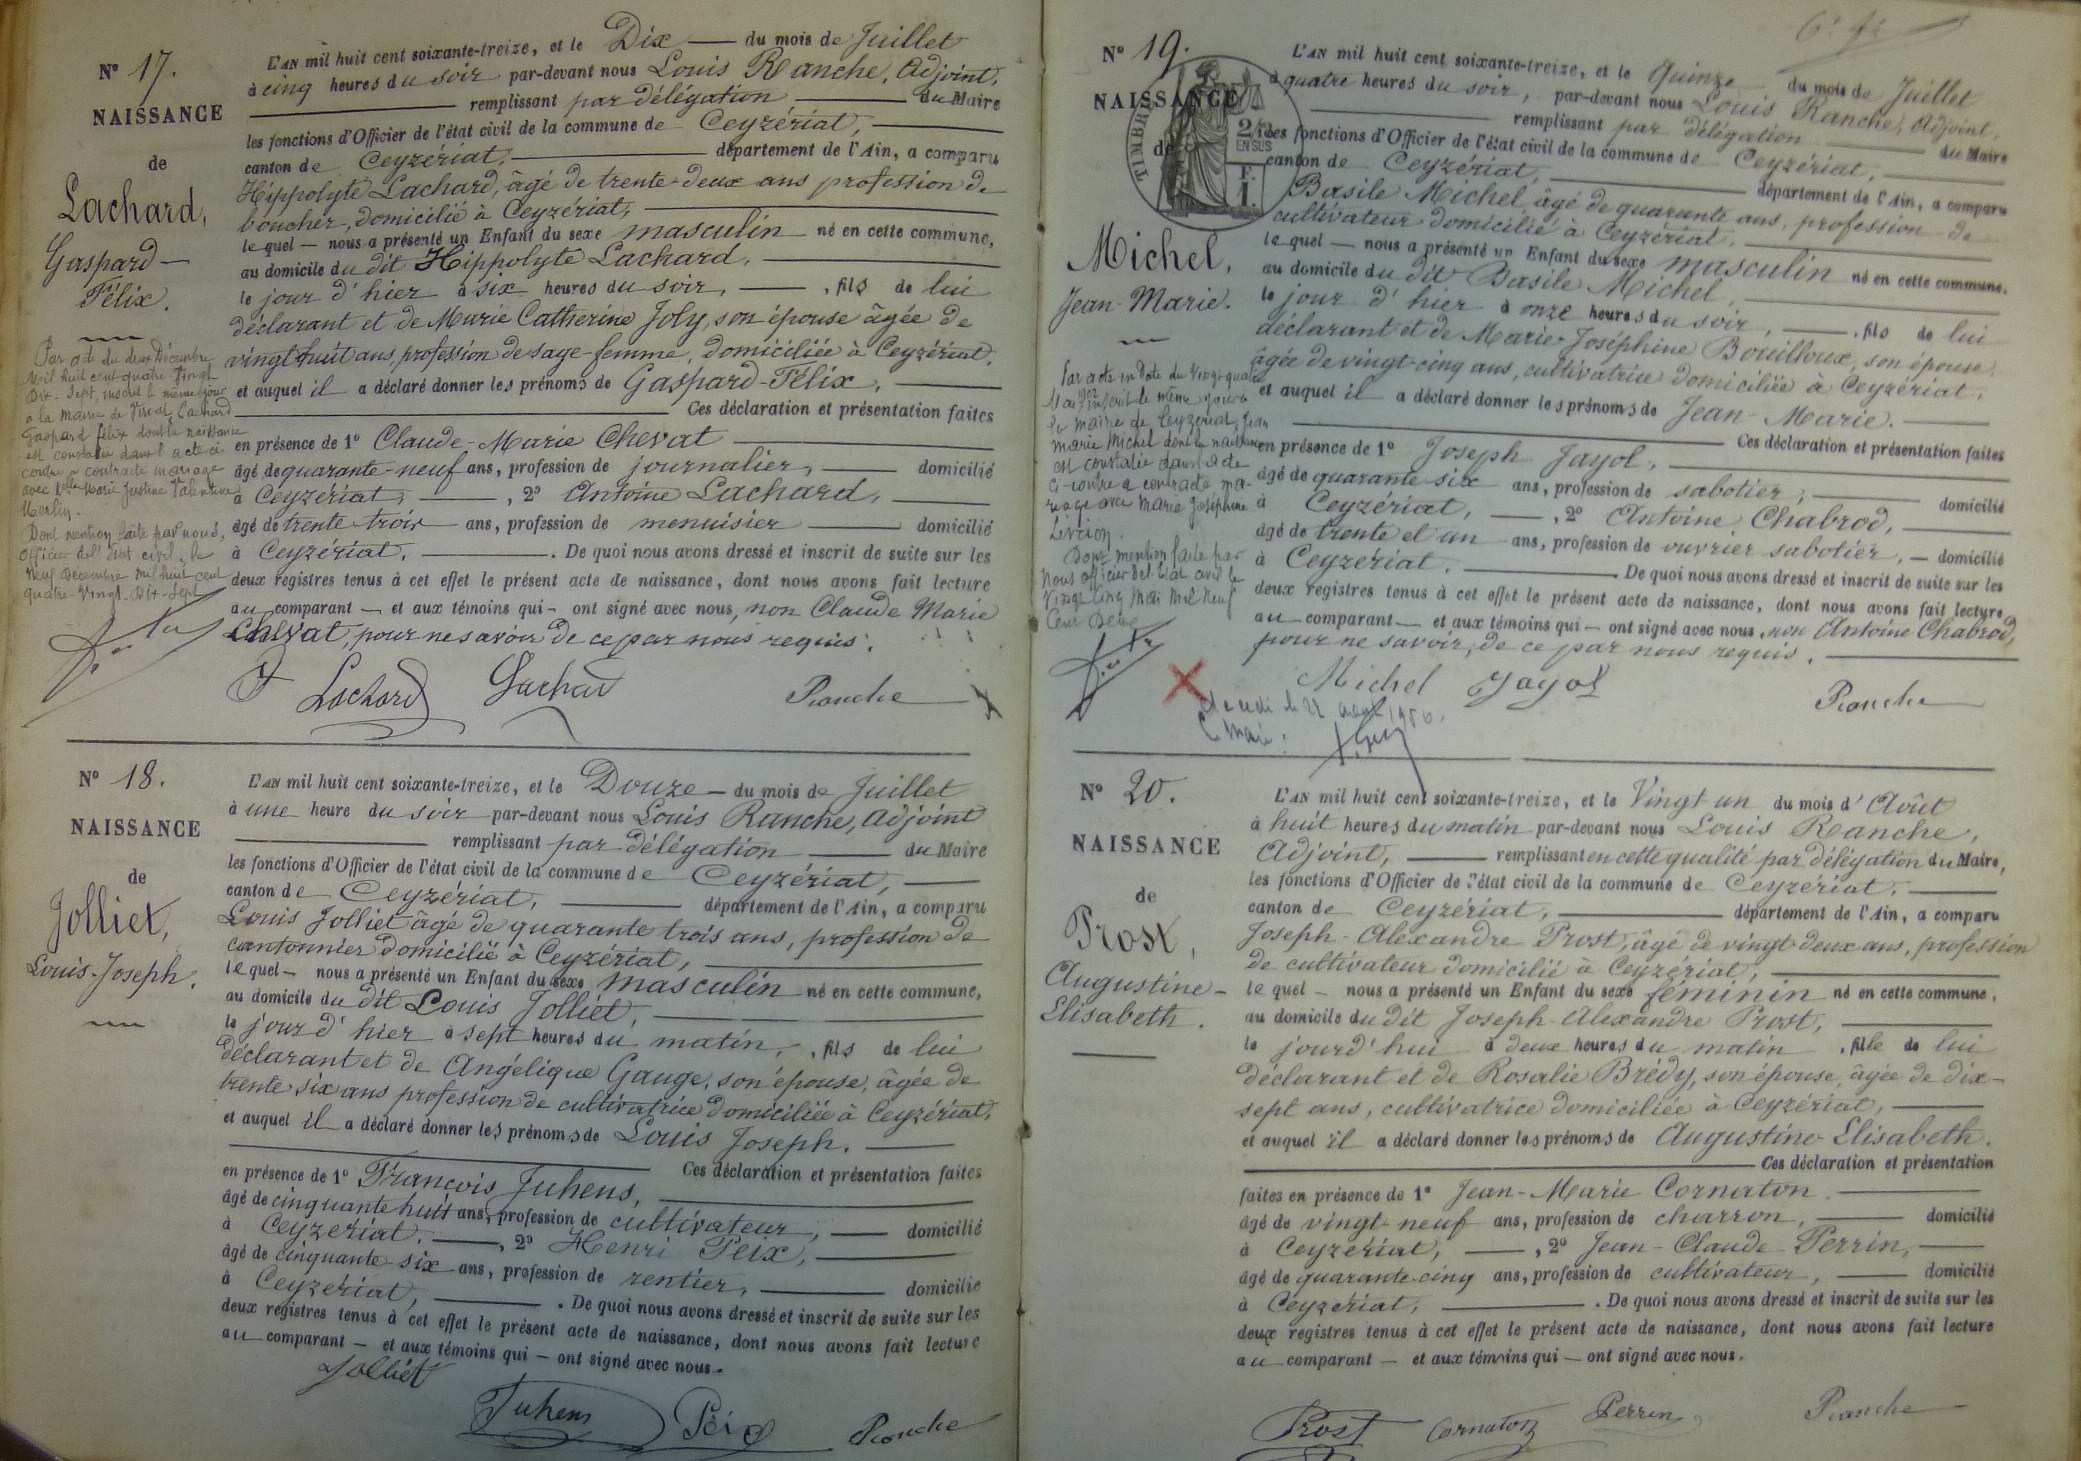 N° 17.
NAISSANCE
de
Lachard,
Gaspard-
Félix.
Par acte du deux Décembre
Mil huit cent quatre vingt
Dix-Sept, inscrit le même jour
à la mairie de Lachard
Gaspard Félix dont la naissance
est constatée dans l'acte ci
contre a contracté mariage
avec Marie Justine Valentine
Merlin.
Dont mention faite par nous,
Officier de l'Etat civil, le
Neuf Décembre Mil huit cent
quatre-Vingt-Dix-Sept
L'AN mil huit cent soixante-treize, et le Dix — du mois de Juillet
à cinq heures du soir par-devant nous Louis Ranche, Adjoint,
remplissant par délégation — du Maire
les fonctions d'Officier de l'état civil de la commune de Ceyzériat,
canton de Ceyzériat, département de l'Ain, a comparu
Hippolyte Lachard, âgé de trente-deux ans profession de
boucher, domicilié à Ceyzériat,
lequel — nous a présenté un Enfant du sexe masculin né en cette commune,
au domicile du dit Hippolyte Lachard,
le jour d'hier à six heures du soir, — , fils de lui
déclarant et de Marie Catherine Joly, son épouse âgée de
vingt huit ans, profession de sage-femme, domiciliée à Ceyzériat,
et auquel il a déclaré donner les prénoms de Gaspard-Félix,
Ces déclaration et présentation faites
en présence de 1° Claude-Marie Chevat
âgé de quarante-neuf ans, profession de journalier, — domicilié
à Ceyzériat, — , 2° Antoine Lachard,
âgé de trente-trois ans, profession de menuisier — domicilié
à Ceyzériat, — . De quoi nous avons dressé et inscrit de suite sur les
deux registres tenus à cet effet le présent acte de naissance, dont nous avons fait lecture
au comparant — et aux témoins qui — ont signé avec nous, non Claude Marie
Chevat, pour ne savoir de ce par nous requis.
Lachard Lachard Ranche
N° 18.
NAISSANCE
de
Jolliet,
Louis-Joseph.
L'AN mil huit cent soixante-treize, et le Douze — du mois de Juillet
à une heure du soir par-devant nous Louis Ranche, Adjoint
remplissant par délégation — du Maire
les fonctions d'Officier de l'état civil de la commune de Ceyzériat,
canton de Ceyzériat, département de l'Ain, a comparu
Louis Jolliet âgé de quarante trois ans, profession de
cantonnier domicilié à Ceyzériat,
lequel — nous a présenté un Enfant du sexe masculin né en cette commune,
au domicile du dit Louis Jolliet,
le jour d'hier à sept heures du matin, , fils de lui
déclarant et de Angélique Gauge, son épouse, âgée de
trente six ans profession de cultivatrice domiciliée à Ceyzériat,
et auquel il a déclaré donner les prénoms de Louis Joseph.
Ces déclaration et présentation faites
en présence de 1° François Juhens,
âgé de cinquante huit ans, profession de cultivateur, — domicilié
à Ceyzériat, — , 2° Henri Peix,
âgé de cinquante six ans, profession de rentier, — domicilié
à Ceyzériat, — . De quoi nous avons dressé et inscrit de suite sur les
deux registres tenus à cet effet le présent acte de naissance, dont nous avons fait lecture
au comparant — et aux témoins qui — ont signé avec nous.
Jolliet
Juhens Peix Ranche
N° 19.
NAISSANCE
de
TIMBRE
2/10 EN SUS
F. 1.
Michel,
Jean-Marie.
Par acte en date du vingt-quatre
Mai 1902 inscrit le même jour à
la mairie de Ceyzériat, Jean
Marie Michel dont la naissance
est constatée dans l'acte
ci-contre a contracté ma-
riage avec Marie Joséphine
Livrion.
Dont mention faite par
Nous officier de l'Etat civil le
Vingt Cinq Mai Mil Neuf
Cent Deux
L'AN mil huit cent soixante-treize, et le Quinze — du mois de Juillet
à quatre heures du soir, par-devant nous Louis Ranche, Adjoint,
remplissant par délégation — du Maire
les fonctions d'Officier de l'état civil de la commune de Ceyzériat,
canton de Ceyzériat, département de l'Ain, a comparu
Basile Michel âgé de quarante ans, profession de
cultivateur domicilié à Ceyzériat,
lequel — nous a présenté un Enfant du sexe masculin né en cette commune,
au domicile du dit Basile Michel,
le jour d'hier à onze heures du soir, — , fils de lui
déclarant et de Marie-Joséphine Bouilloux, son épouse
âgée de vingt-cinq ans, cultivatrice domiciliée à Ceyzériat,
et auquel il a déclaré donner les prénoms de Jean-Marie.
Ces déclaration et présentation faites
en présence de 1° Joseph Jayol,
âgé de quarante six ans, profession de sabotier, — domicilié
à Ceyzériat, — , 2° Antoine Chabrod,
âgé de trente et un ans, profession de ouvrier sabotier, — domicilié
à Ceyzériat, — . De quoi nous avons dressé et inscrit de suite sur les
deux registres tenus à cet effet le présent acte de naissance, dont nous avons fait lecture
au comparant — et aux témoins qui — ont signé avec nous, non Antoine Chabrod,
pour ne savoir, de ce par nous requis.
Michel Jayol Ranche
le 22 août 1950.
Maire:
N° 20.
NAISSANCE
de
Prost,
Augustine-
Elisabeth.
L'AN mil huit cent soixante-treize, et le Vingt un du mois d'Août
à huit heures du matin par-devant nous Louis Ranche,
Adjoint, — remplissant en cette qualité par délégation du Maire,
les fonctions d'Officier de l'état civil de la commune de Ceyzériat,
canton de Ceyzériat, — département de l'Ain, a comparu
Joseph-Alexandre Prost, âgé de vingt-deux ans, profession
de cultivateur domicilié à Ceyzériat,
lequel — nous a présenté un Enfant du sexe féminin né en cette commune,
au domicile du dit Joseph-Alexandre Prost,
le jourd'hui à deux heures du matin , fille de lui
déclarant et de Rosalie Brédy, son épouse, âgée de dix-
sept ans, cultivatrice domiciliée à Ceyzériat,
et auquel il a déclaré donner les prénoms de Augustine Elisabeth.
Ces déclaration et présentation
faites en présence de 1° Jean-Marie Cornaton
âgé de vingt-neuf ans, profession de charron, — domicilié
à Ceyzériat, — , 2° Jean-Claude Perrin,
âgé de quarante-cinq ans, profession de cultivateur, — domicilié
à Ceyzériat, — . De quoi nous avons dressé et inscrit de suite sur les
deux registres tenus à cet effet le présent acte de naissance, dont nous avons fait lecture
au comparant — et aux témoins qui — ont signé avec nous.
Prost Cornaton Perrin Ranche